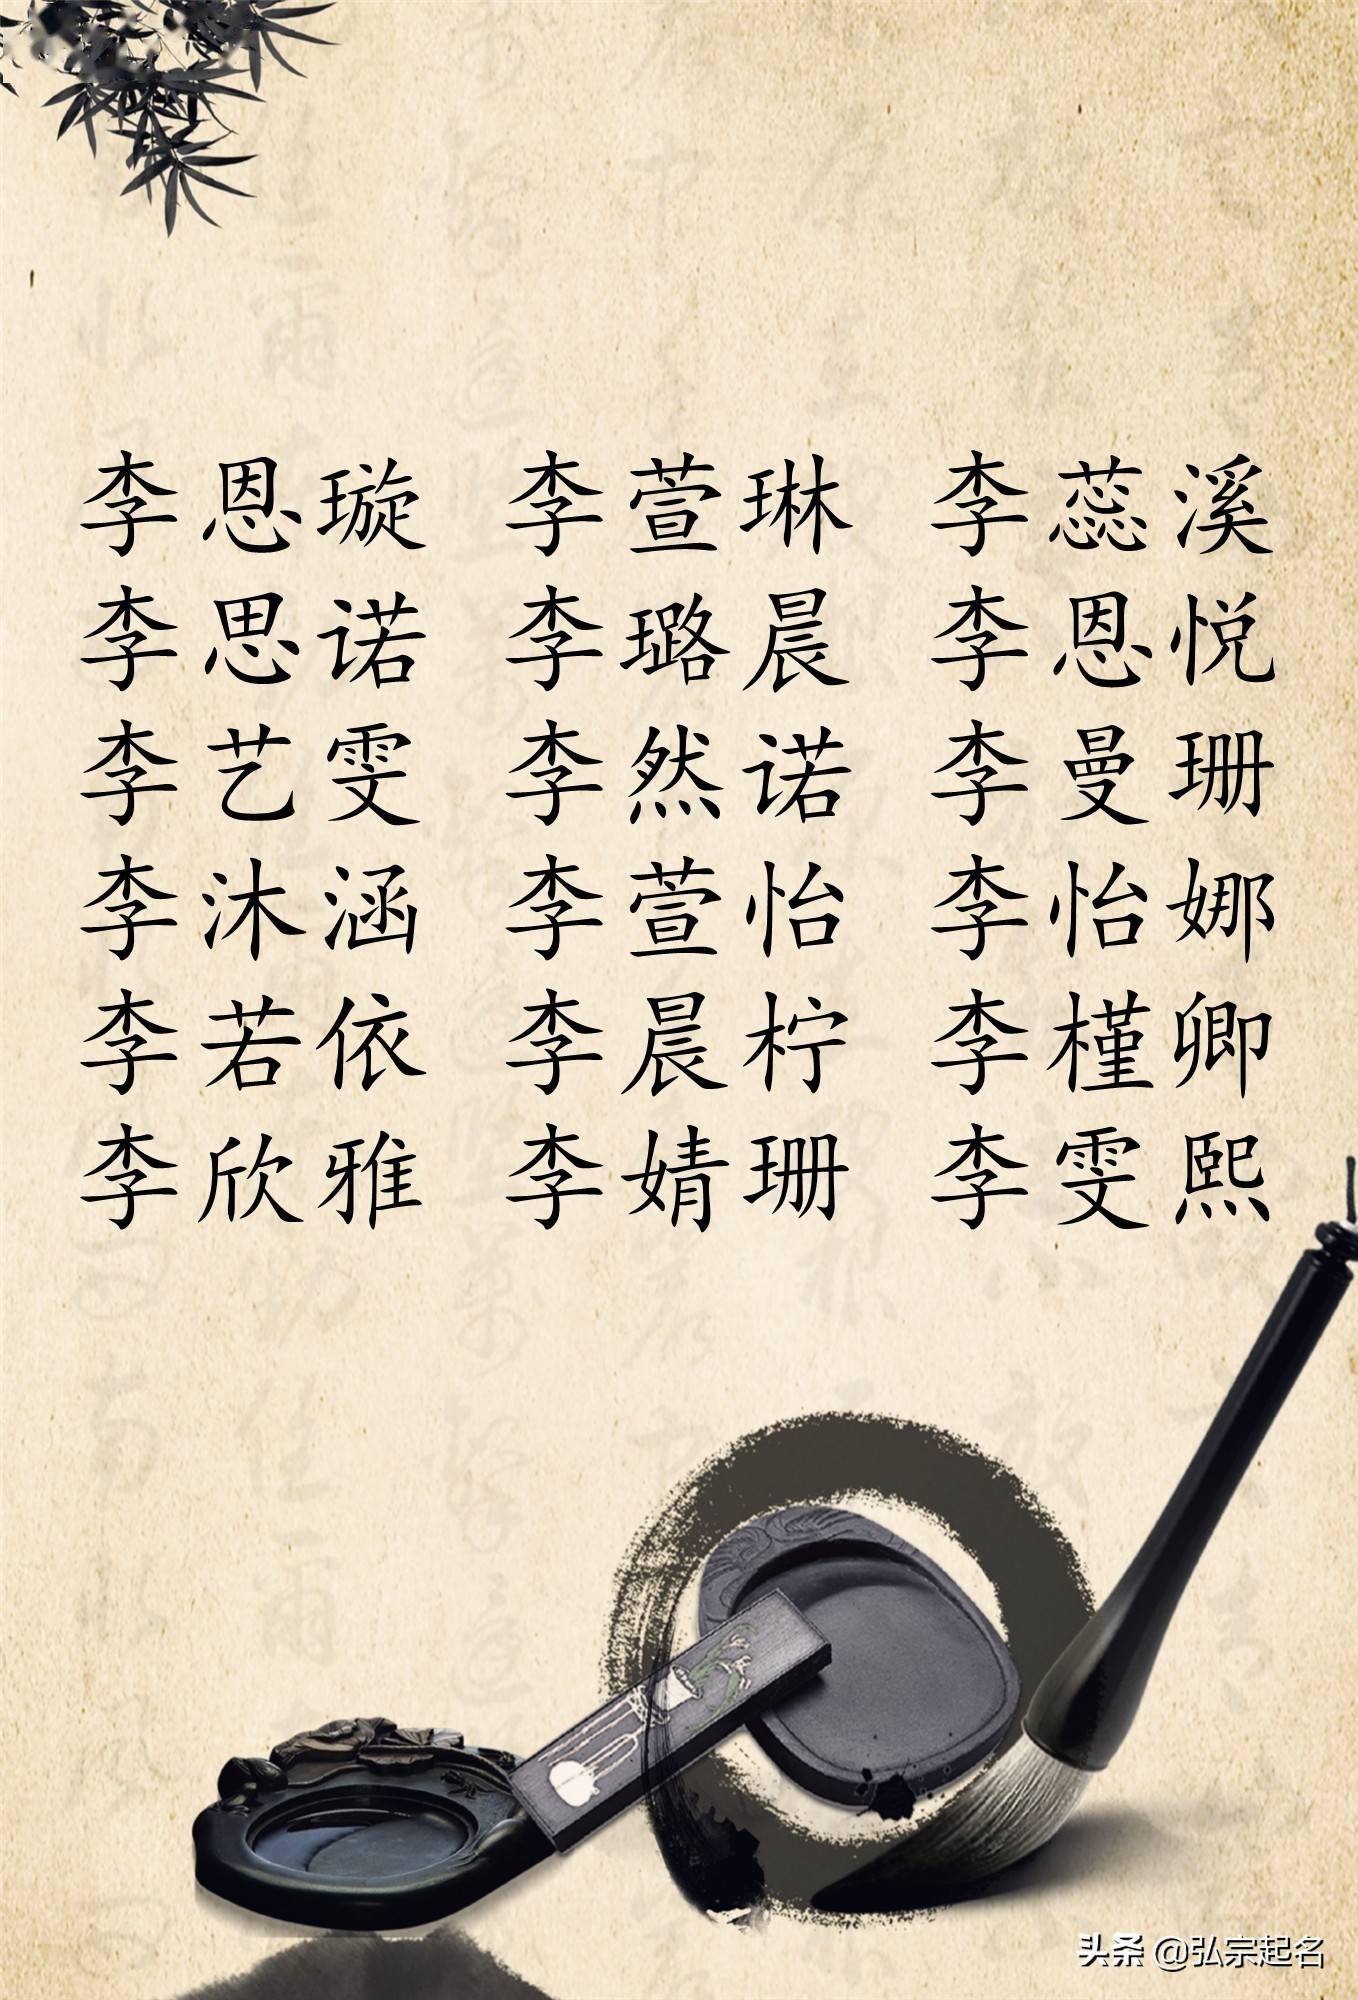 李恩璇 李萱琳 李蕊溪
李思诺 李璐晨 李恩悦
李艺雯 李然诺 李曼珊
李沐涵 李萱怡 李怡娜
李若依 李晨柠 李槿卿
李欣雅 李婧珊 李雯熙
头条 @弘宗起名